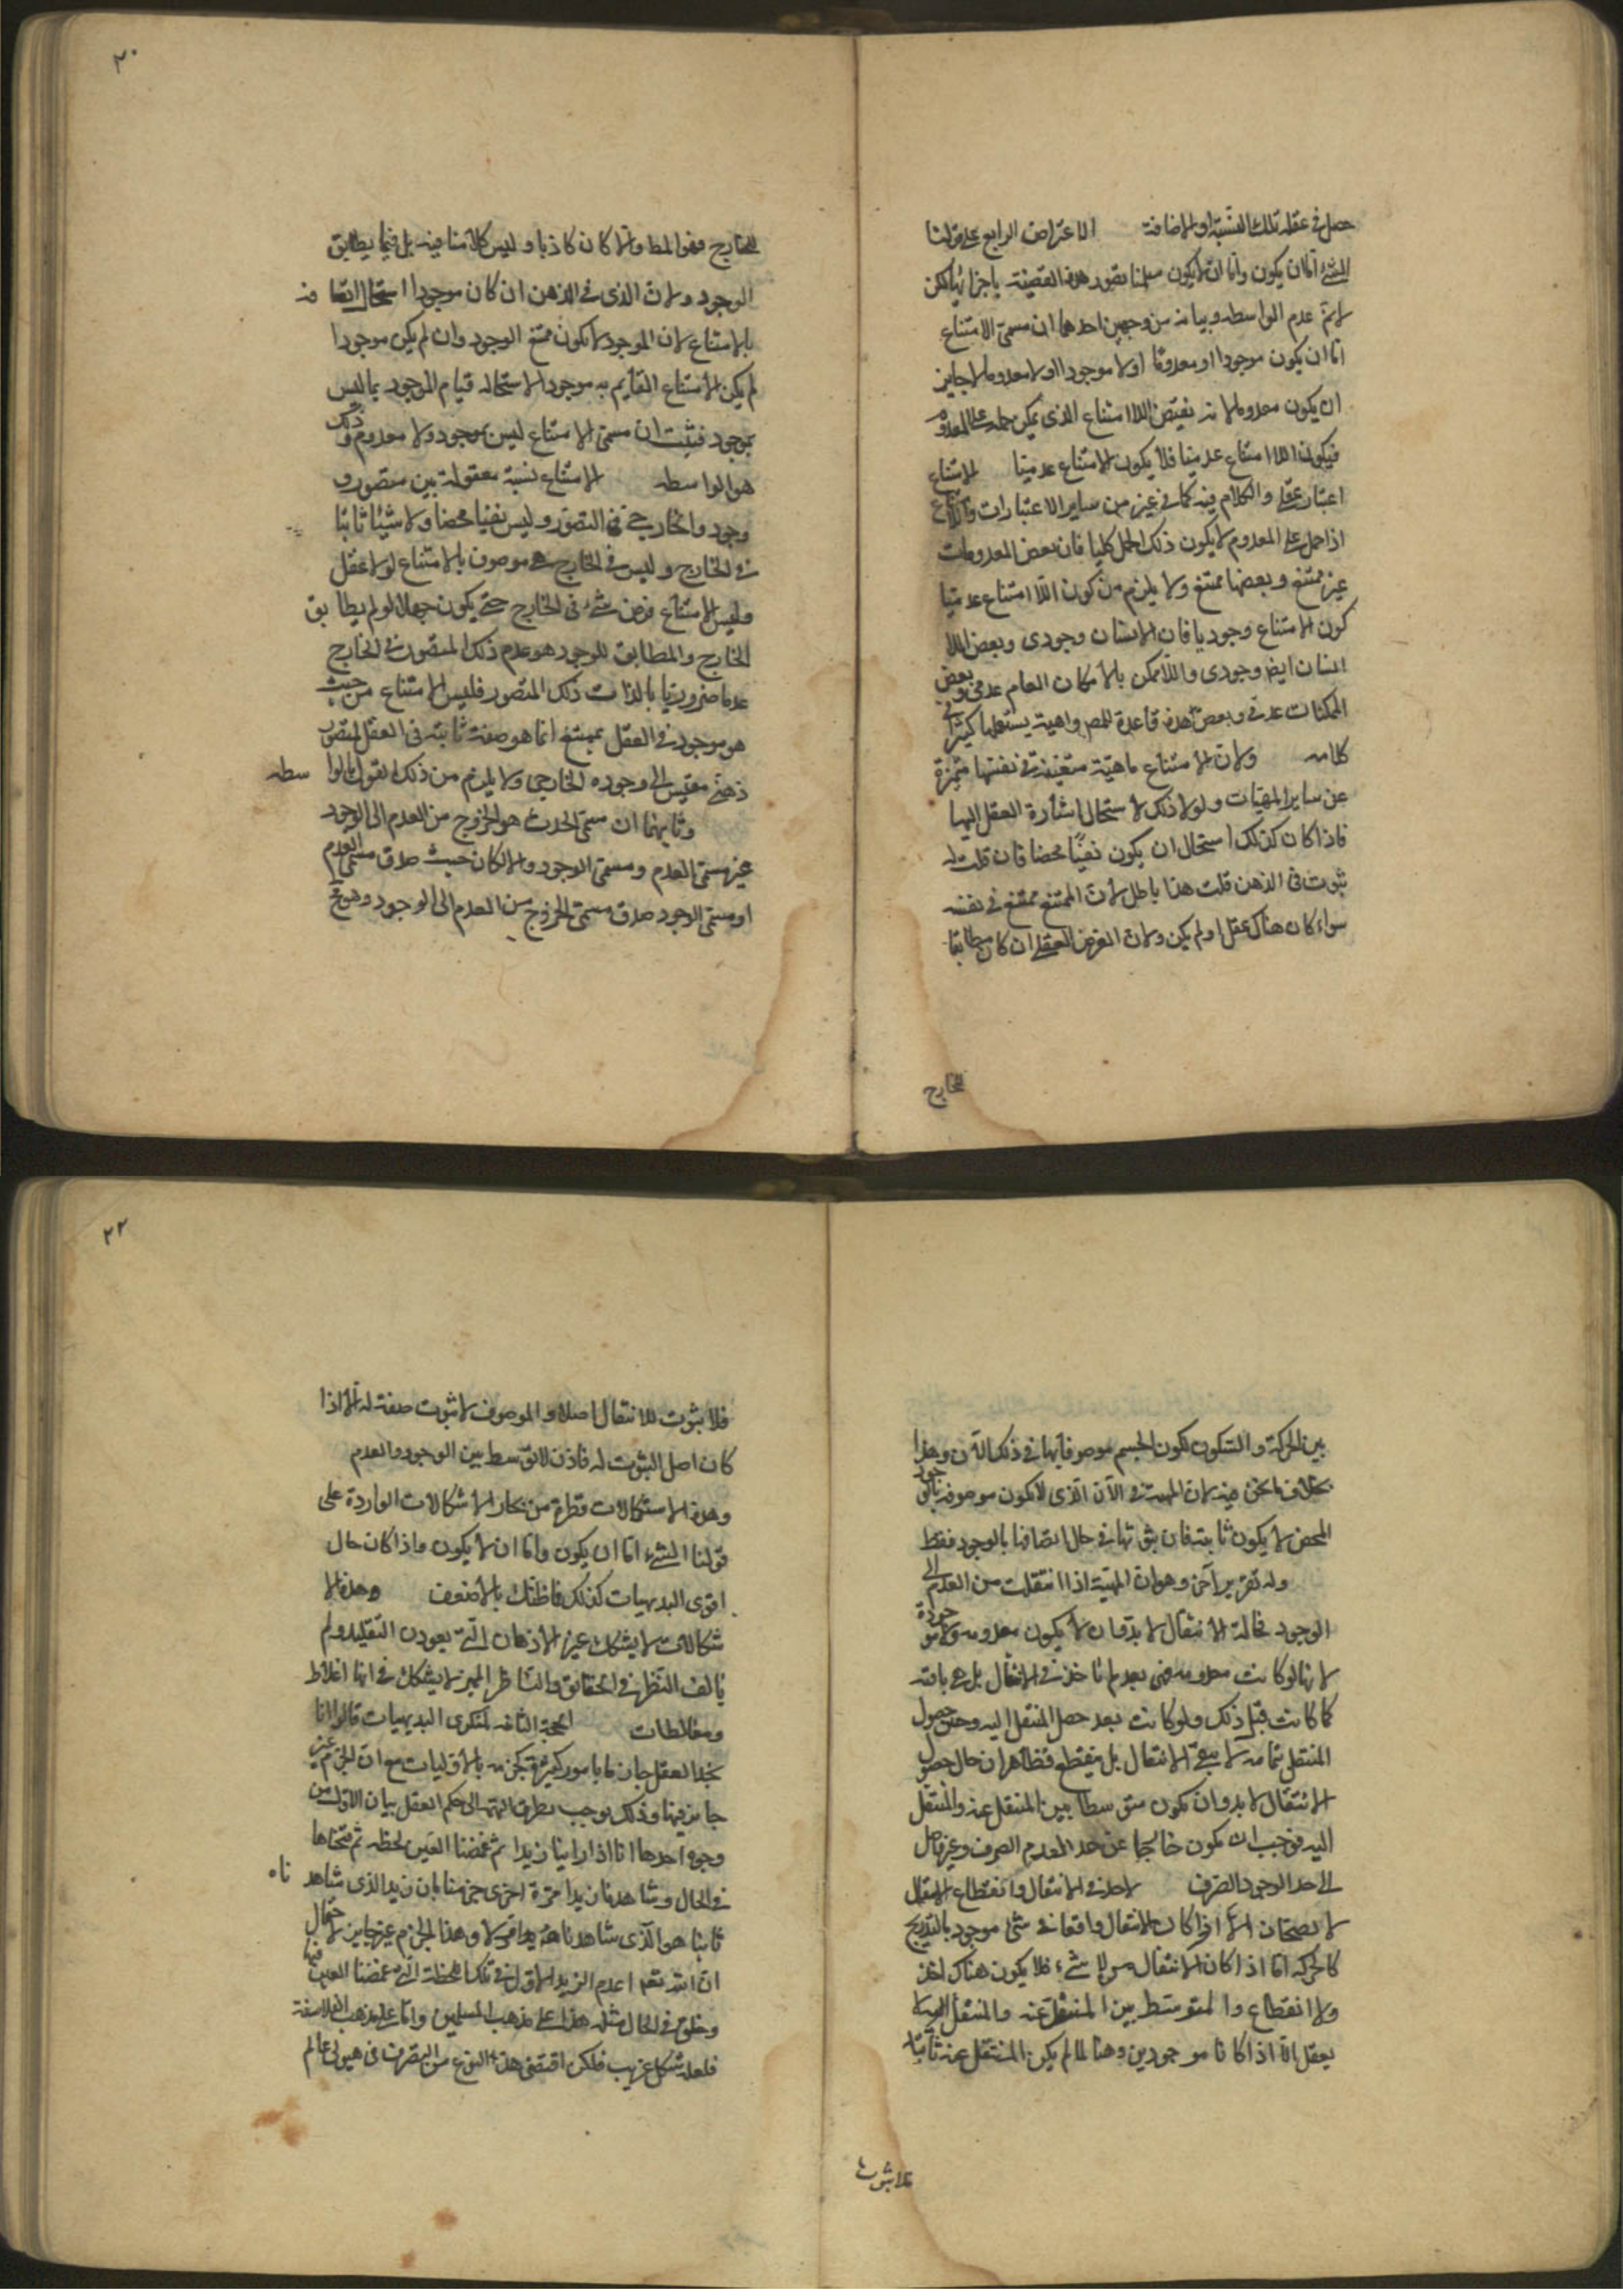 حصل فى عقله تلك النسبة او الاضافة الاعتراض الرابع على قولنا
الشئ اما ان يكون واما ان لا يكون سلمنا تصور هذه القضية باجزائها لكن
لا نم عدم الواسطه وبيانه من وجهين احدهما ان مسمى الامتناع
اما ان يكون موجودا او معدوما او لا موجودا ولا معدوما لا جايز
ان يكون معدوما لانه نقيض اللا امتناع الذى يمكن حمله على المعدوم
فيكون اللا امتناع عدميا فلا يكون الامتناع عدميا الامتناع
اعتبار عقلى والكلام فيه كما فى غيره من ساير الاعتبارات واللا امتناع
اذا حمل على المعدوم لا يكون ذلك الحمل كليا فان بعض المعدومات
غير ممتنع وبعضها ممتنع ولا يلزم من كون اللا امتناع عدميا
كون الامتناع وجوديا فان الانسان وجودى وبعض اللا
انسان ايض وجودى واللا ممكن بالامكان العام عدمى وبعض
الممكنات عدمى وبعض هذه قاعدة للمص واهية يستعملها كثيرا فى
كلامه ولان الامتناع ماهية متعينة فى نفسها متميزة
عن ساير المهيات ولولا ذلك لاستحال اشارة العقل اليها
فاذا كان كذلك استحال ان يكون نفيا محضا فان قلت له
ثبوت فى الذهن قلت هذا باطل لان الممتنع ممتنع فى نفسه
سواء كان هناك عقل او لم يكن ولان الفرض العقلى ان كان مطابقا
للخارج
٢٠
للخارج فهو المط والا كان كاذبا وليس كلامنا فيه بل فيما يطابق
الوجود ولان الذى فى الذهن ان كان موجودا استحال اتصافه
بالامتناع لان الموجود لا يكون ممتنع الوجود وان لم يكن موجودا
لم يكن الامتناع القايم به موجودا لاستحالة قيام الموجود بما ليس
بموجود فثبت ان مسمى الامتناع ليس بموجود ولا معدوم وذلك
هو الواسطه الامتناع نسبة معقولة بين متصور و
وجوده الخارجى فى التصور وليس نفيا محضا ولا شيئا ثابتا
فى الخارج وليس فى الخارج شئ موصوف بالامتناع لولا عقل
وليس الامتناع فرض شئ فى الخارج حتى يكون جهلا لو لم يطابق
الخارج والمطابق للوجود هو عدم ذلك المتصور فى الخارج
عدما ضروريا بالذات ذلك المتصور فليس الامتناع من حيث
هو موجود فى العقل بممتنع انما هو صفة ثابتة فى العقل لمتصور
ذهنى مقيس الى وجوده الخارجى ولا يلزم من ذلك القول بالواسطه
وثانيهما ان مسمى الحدوث هو الخروج من العدم الى الوجود
غير مسمى العدم ومسمى الوجود والا لكان حيث صدق مسمى العدم
او مسمى الوجود صدق مسمى الخروج من العدم الى الوجود وهو مح
بين الحركة والسكون لكون الجسم موصوفا بهما فى ذلك الان وهذا
بخلاف ما نحن فيه لان المهية فى الآن الذى لا تكون موصوفة بالوجود
المحض لا يكون ثابتة فان ثبوتها فى حال اتصافها بالوجود فقط
وله تقرير آخر وهو ان المهية اذا انتقلت من العدم الى
الوجود فحالة الانتقال لا بد وان لا يكون معدومة ولا موجودة
لانها لو كانت معدومة فهى بعد لم تاخذ فى الانتقال بل هى باقية
كما كانت قبل ذلك ولو كانت بعد حصل المنتقل اليه وحين حصول
المنتقل بتمامه لا يبقى الانتقال بل ينقطع فظاهر ان حال حصول
الانتقال لا بد وان تكون متوسطا بين المنتقل عنه والمنتقل
اليه فوجب ان تكون خارجا عن حد المعدم الصرف وغير واصل
الى حد الوجود الصرف الاخذ فى الانتقال وانقطاع الانتقال
لا يصحان الا اذا كان الانتقال واقعا فى شئ موجود بالتدريج
كالحركه اما اذا كان الانتقال من لا شئ فلا يكون هناك اخذ
ولا انقطاع والمتوسط بين المنتقل عنه والمنتقل اليه لا
يعقل الا اذا كانا موجودين وهنا لما لم يكن المنتقل عنه ثابتا
فلا ثبوت
٢٢
فلا ثبوت للانتقال اصلا والموصوف لا ثبوت صفة له الا اذا
كان اصل الثبوت له فاذن لا توسط بين الوجود والعدم
وهذه الاستشكالات قطرة من بحار الاشكالات الواردة على
قولنا الشئ اما ان يكون واما ان لا يكون واذا كان حال
اقوى البديهيات كذلك فما ظنك بالاضعف وهذه الا
شكالات لا يشكك غير الاذهان التى يعودن التقليد ولم
يالف النظر فى الحقايق والناظر المميز لا يشكك فى انها اغلاط
ومغالطات الحجة الثانية لمنكرى البديهيات قالوا انا
نجد العقل جازما بامور كثيرة كجزمه بالاوليات مع ان الجزم غير
جايز فيها وذلك يوجب تطرق التهم الى حكم العقل بيان الاول من
وجوه احدها انا اذا راينا زيدا ثم غمضنا العين لحظه ثم فتحناها
فى الحال وشاهدنا زيدا مرة اخرى جزمنا بان زيدا الذى شاهدناه
ثانيا هو الذى شاهدناه اولا وهذا الجزم غير جايز لاحتمال
ان الله تعم اعدم الزيد الاول فى تلك اللحظة التى غمضنا العين فيها
وخلق فى الحال مثله هذا على مذهب المسلمين واما على مذهب الفلاسفة
فلعله شكل غريب فلكى اقتضى هذا النوع من التصرف فى هيولى عالم